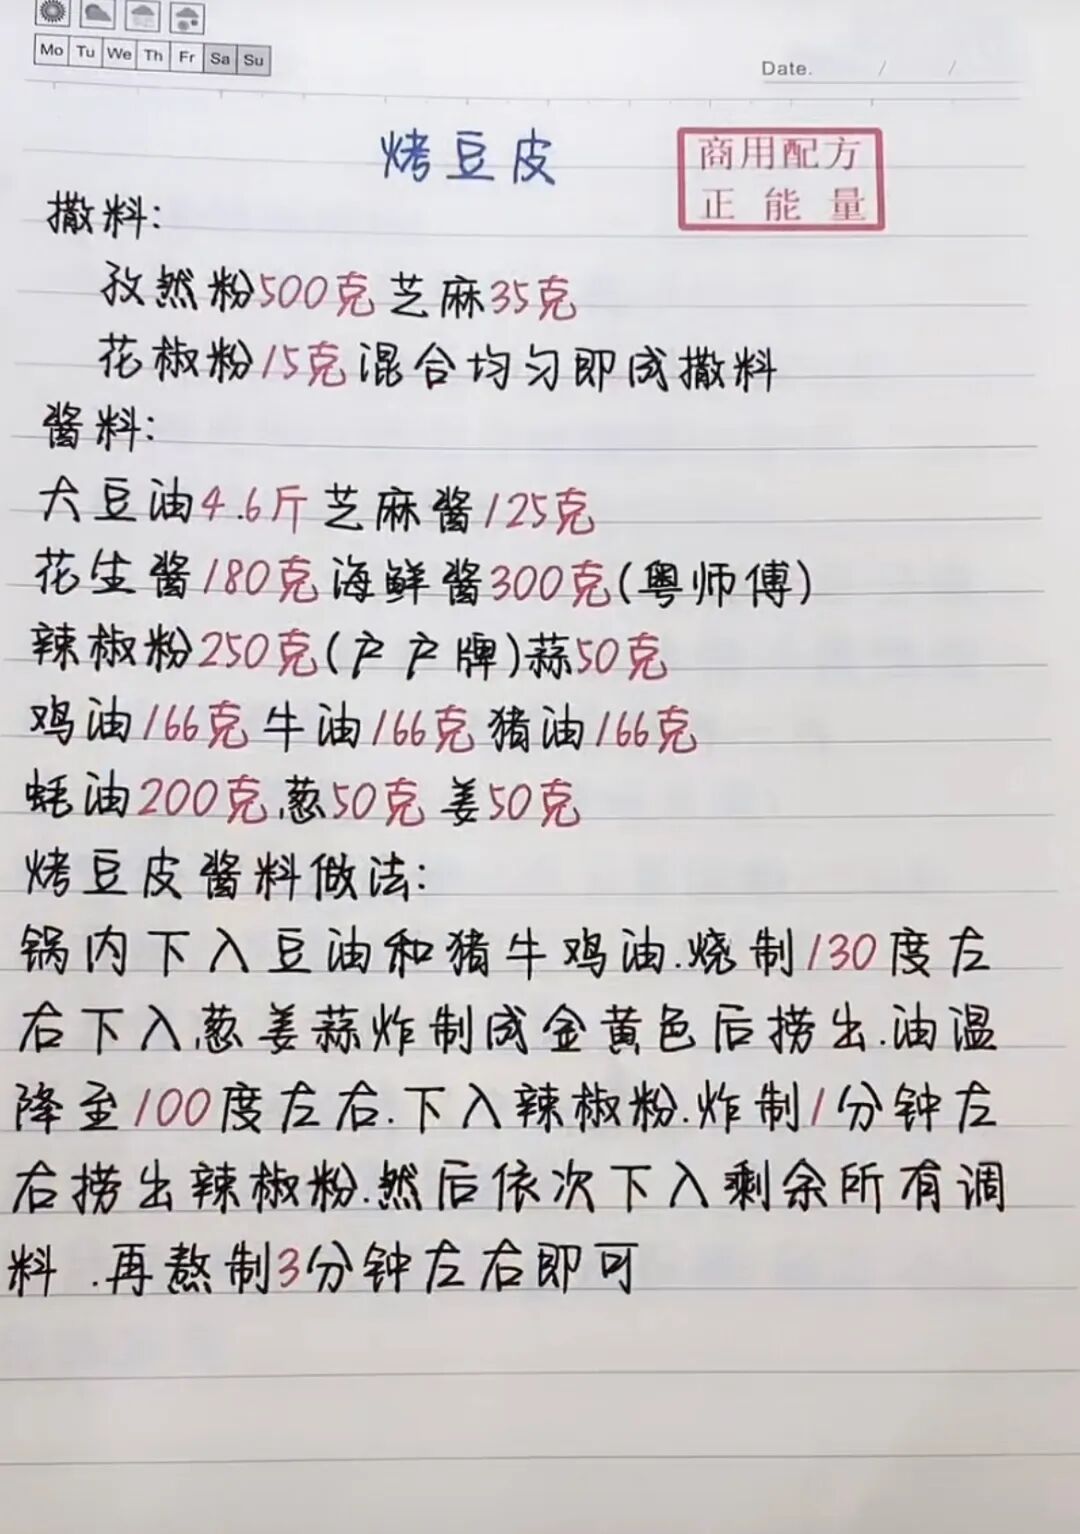 Mo Tu We Th Fr Sa Su
Date. / /
烤豆皮
商用配方
正能量
撒料:
孜然粉500克芝麻35克
花椒粉15克混合均匀即成撒料
酱料:
大豆油4.6斤芝麻酱125克
花生酱180克海鲜酱300克(粤师傅)
辣椒粉250克(户户牌)蒜50克
鸡油166克牛油166克猪油166克
蚝油200克葱50克姜50克
烤豆皮酱料做法:
锅内下入豆油和猪牛鸡油.烧制130度左
右下入葱姜蒜炸制成金黄色后捞出.油温
降至100度左右.下入辣椒粉.炸制1分钟左
右捞出辣椒粉.然后依次下入剩余所有调
料.再熬制3分钟左右即可